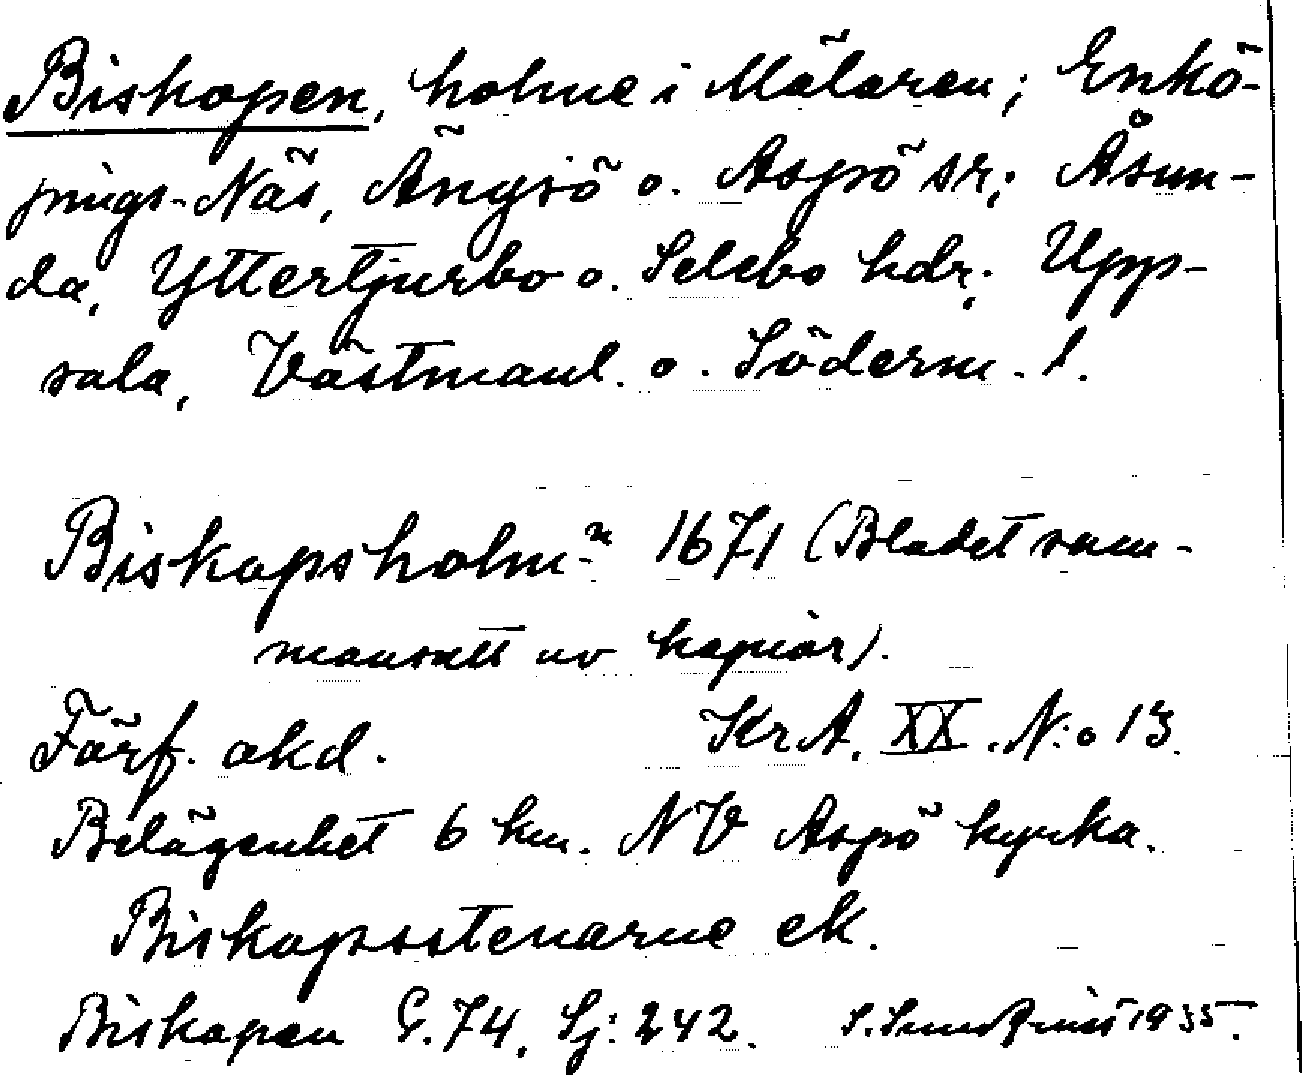 Biskopen, holme i Mälaren; Enkö-
pings-Näs, Ängsö o. Aspö sr; Åsun-
da, Yttertjurbo o. Selebo hdr; Upp-
sala, Västmanl. o. Söderm. l.
Biskopsholm-n 1671 (Bladet sam-
mansatt av kopior).
Förf. okd. KrA. XX. N:o 13.
Belägenhet 6 km. NV Aspö kyrka.
Biskopsstenarne ek.
Biskopen G. 74, Sj: 242. S. 1935.